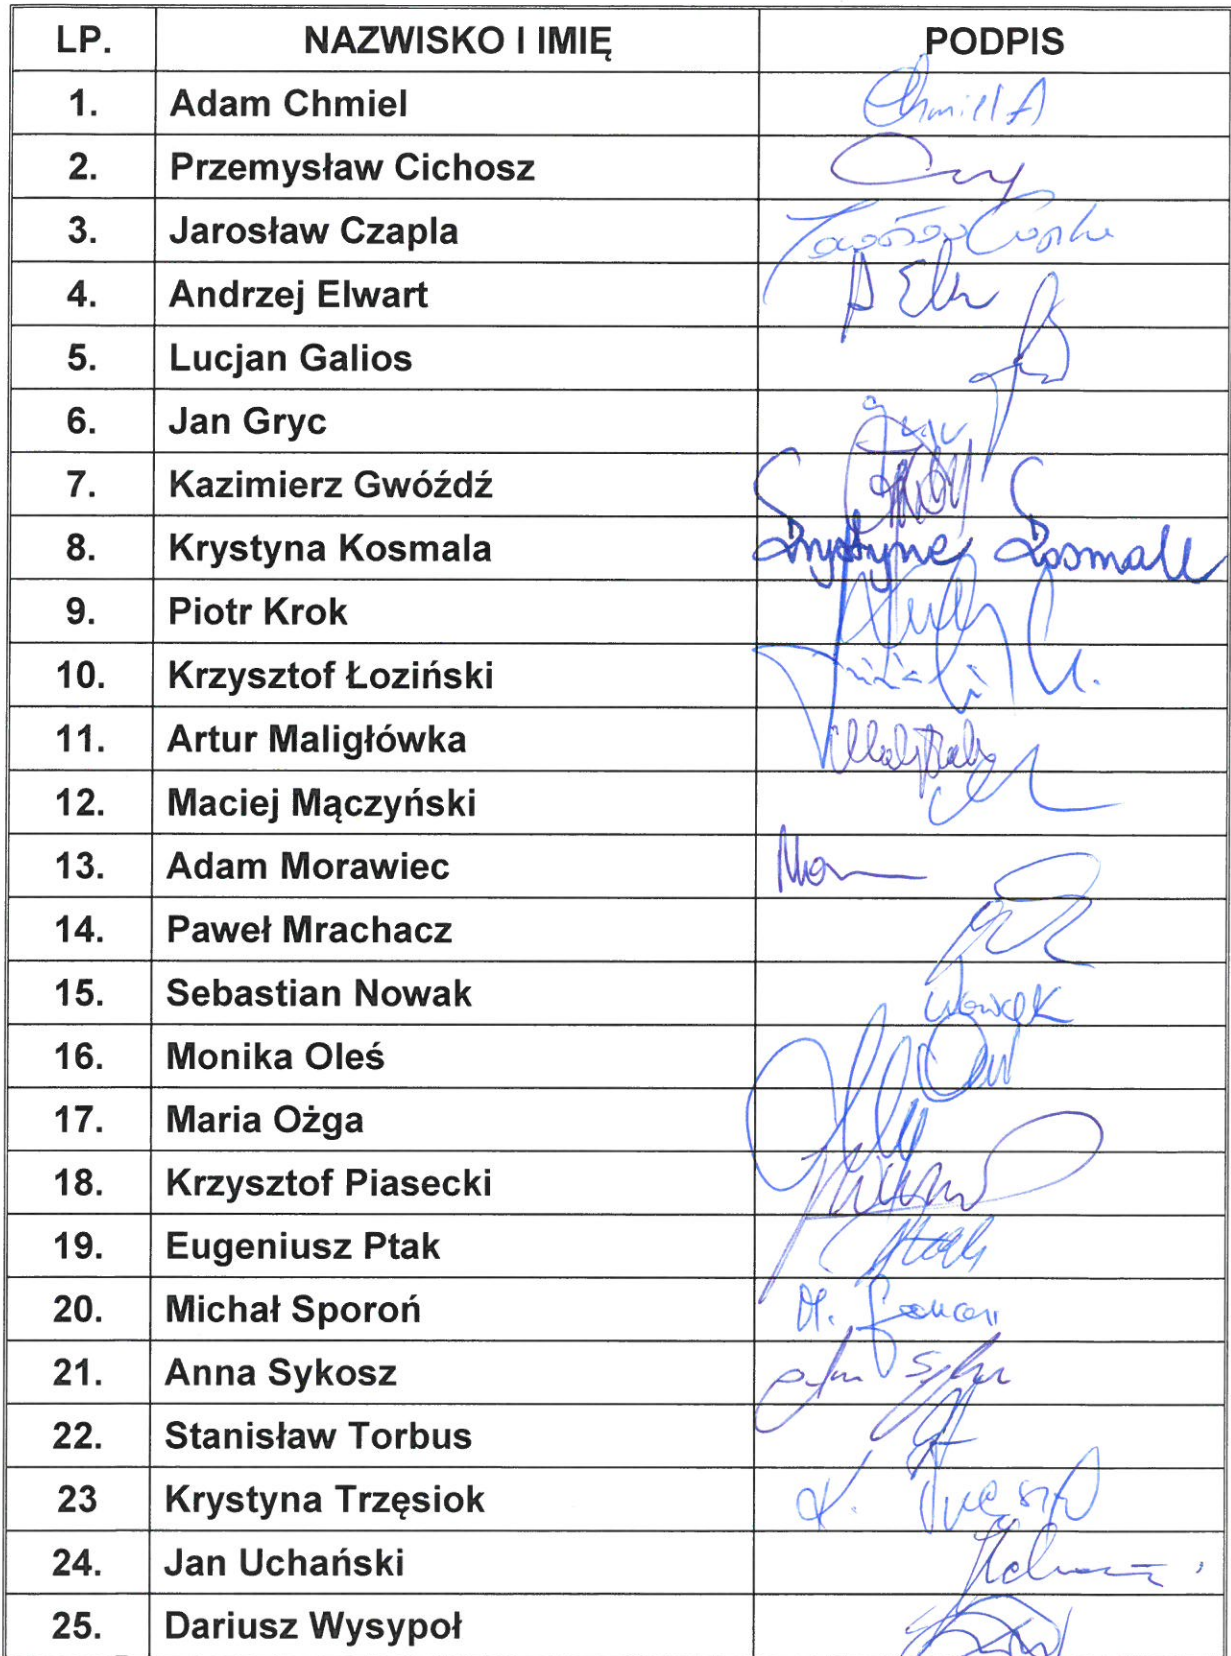 LP. NAZWISKO I IMIĘ PODPIS
1. Adam Chmiel Chmiel A
2. Przemysław Cichosz
3. Jarosław Czapla Jarosław Czapla
4. Andrzej Elwart A Elw
5. Lucjan Galios
6. Jan Gryc
7. Kazimierz Gwóźdź
8. Krystyna Kosmala Krystyna Kosmala
9. Piotr Krok
10. Krzysztof Łoziński
11. Artur Maligłówka
12. Maciej Mączyński
13. Adam Morawiec Mor
14. Paweł Mrachacz
15. Sebastian Nowak Nowak
16. Monika Oleś
17. Maria Ożga
18. Krzysztof Piasecki
19. Eugeniusz Ptak Ptak
20. Michał Sporoń M.
21. Anna Sykosz
22. Stanisław Torbus
23 Krystyna Trzęsiok K.
24. Jan Uchański
25. Dariusz Wysypoł